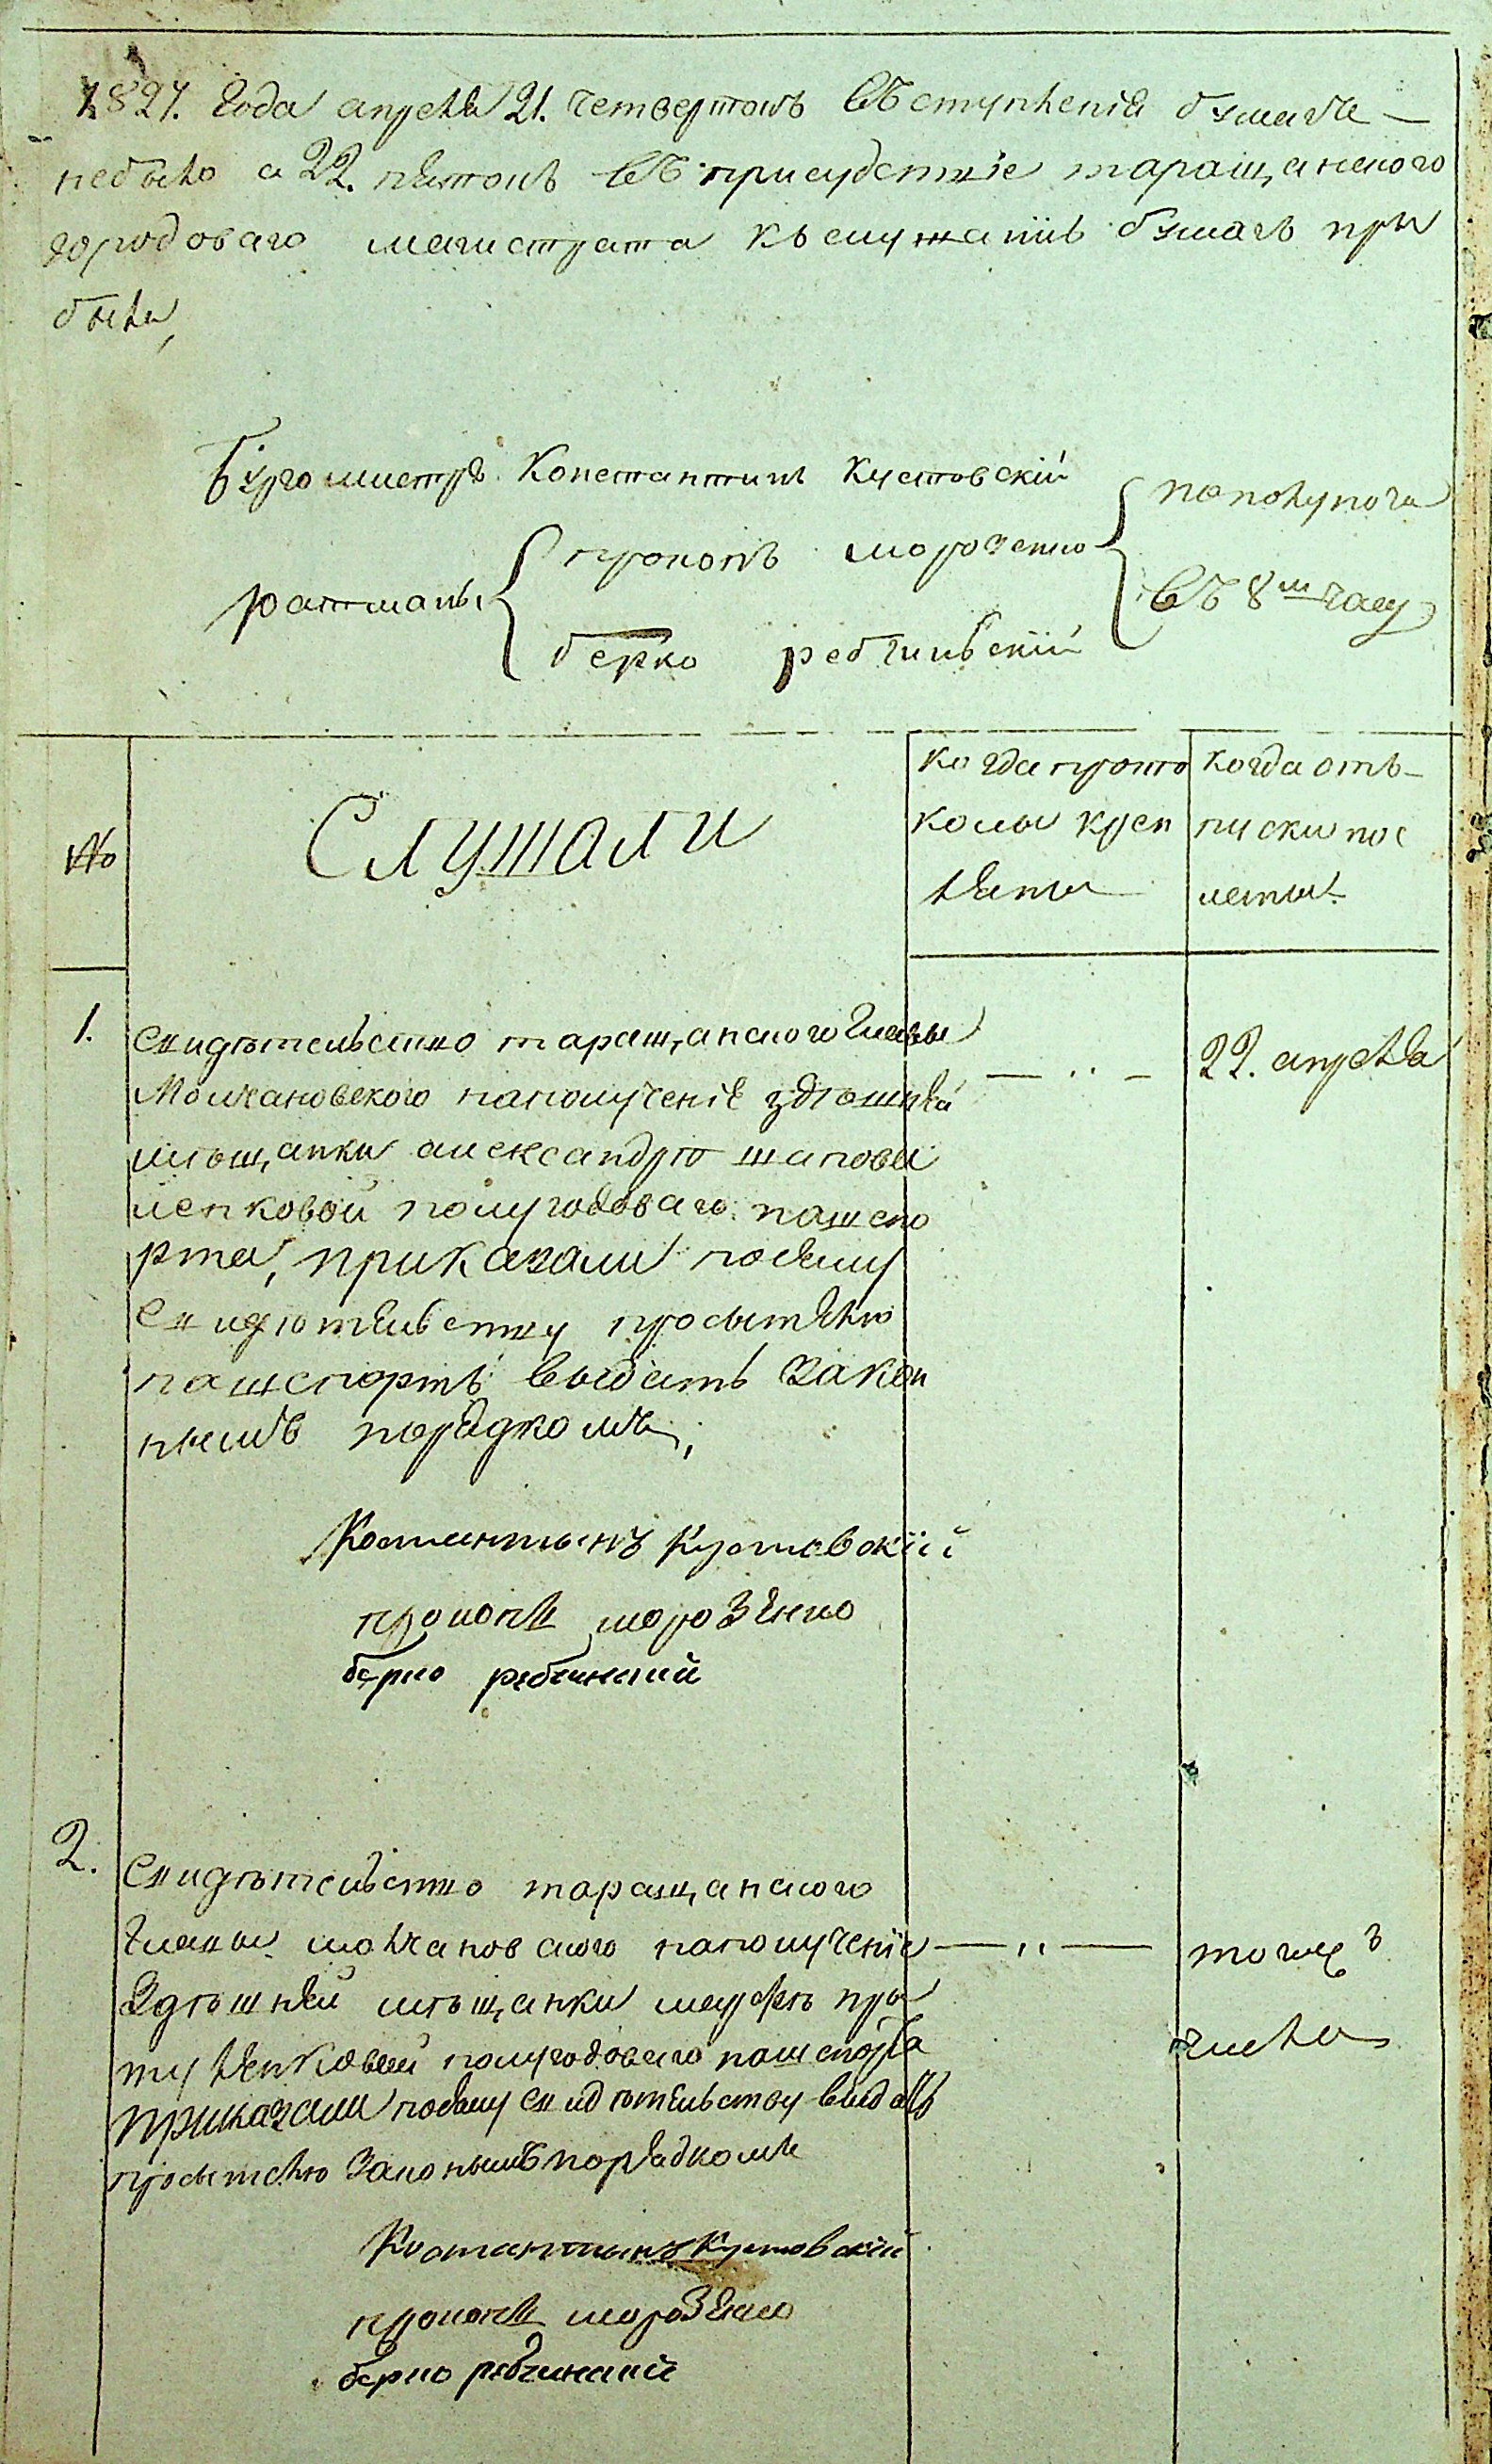 1827. года апреля 21. четвертокъ въступленія бумагъ —
небыло а 22. пятокъ въ присудствіе таращанского
городоваго магистрата къ слушанію бумагъ при
были,
Бургомистръ Константинъ Кустовскій
пополуноча
прокопъ морозенко
ратманы
въ 8м часу
берко ребчинскій
№
Слушали
когда прото
колы креп
ляны
когда отъ-
пуски пос
ланы
1.
свидѣтельство таращанского главы
Молчановского наполученіе здѣшней
мѣщанки александрѣ шапова
ленковой полугодоваго пашспо
рта, приказали посему
свидѣтельству просителю
пашспортъ выдать закон
нымъ порядкомъ,
22. апреля
Костантынъ Кустовскій
прокопъ морозенко
берко ребчинский
2.
Свидѣтельство таращанского
главы молчановского наполученіе
Здѣшней мѣщанки марфѣ при
туленковой полугодоваго пашспорта
приказали посему свидѣтельству выдать
просителю законнымъ порядкомъ
тогожъ
числа
Костантынъ Кустовскій
прокопъ морозенко
берко ребчинский